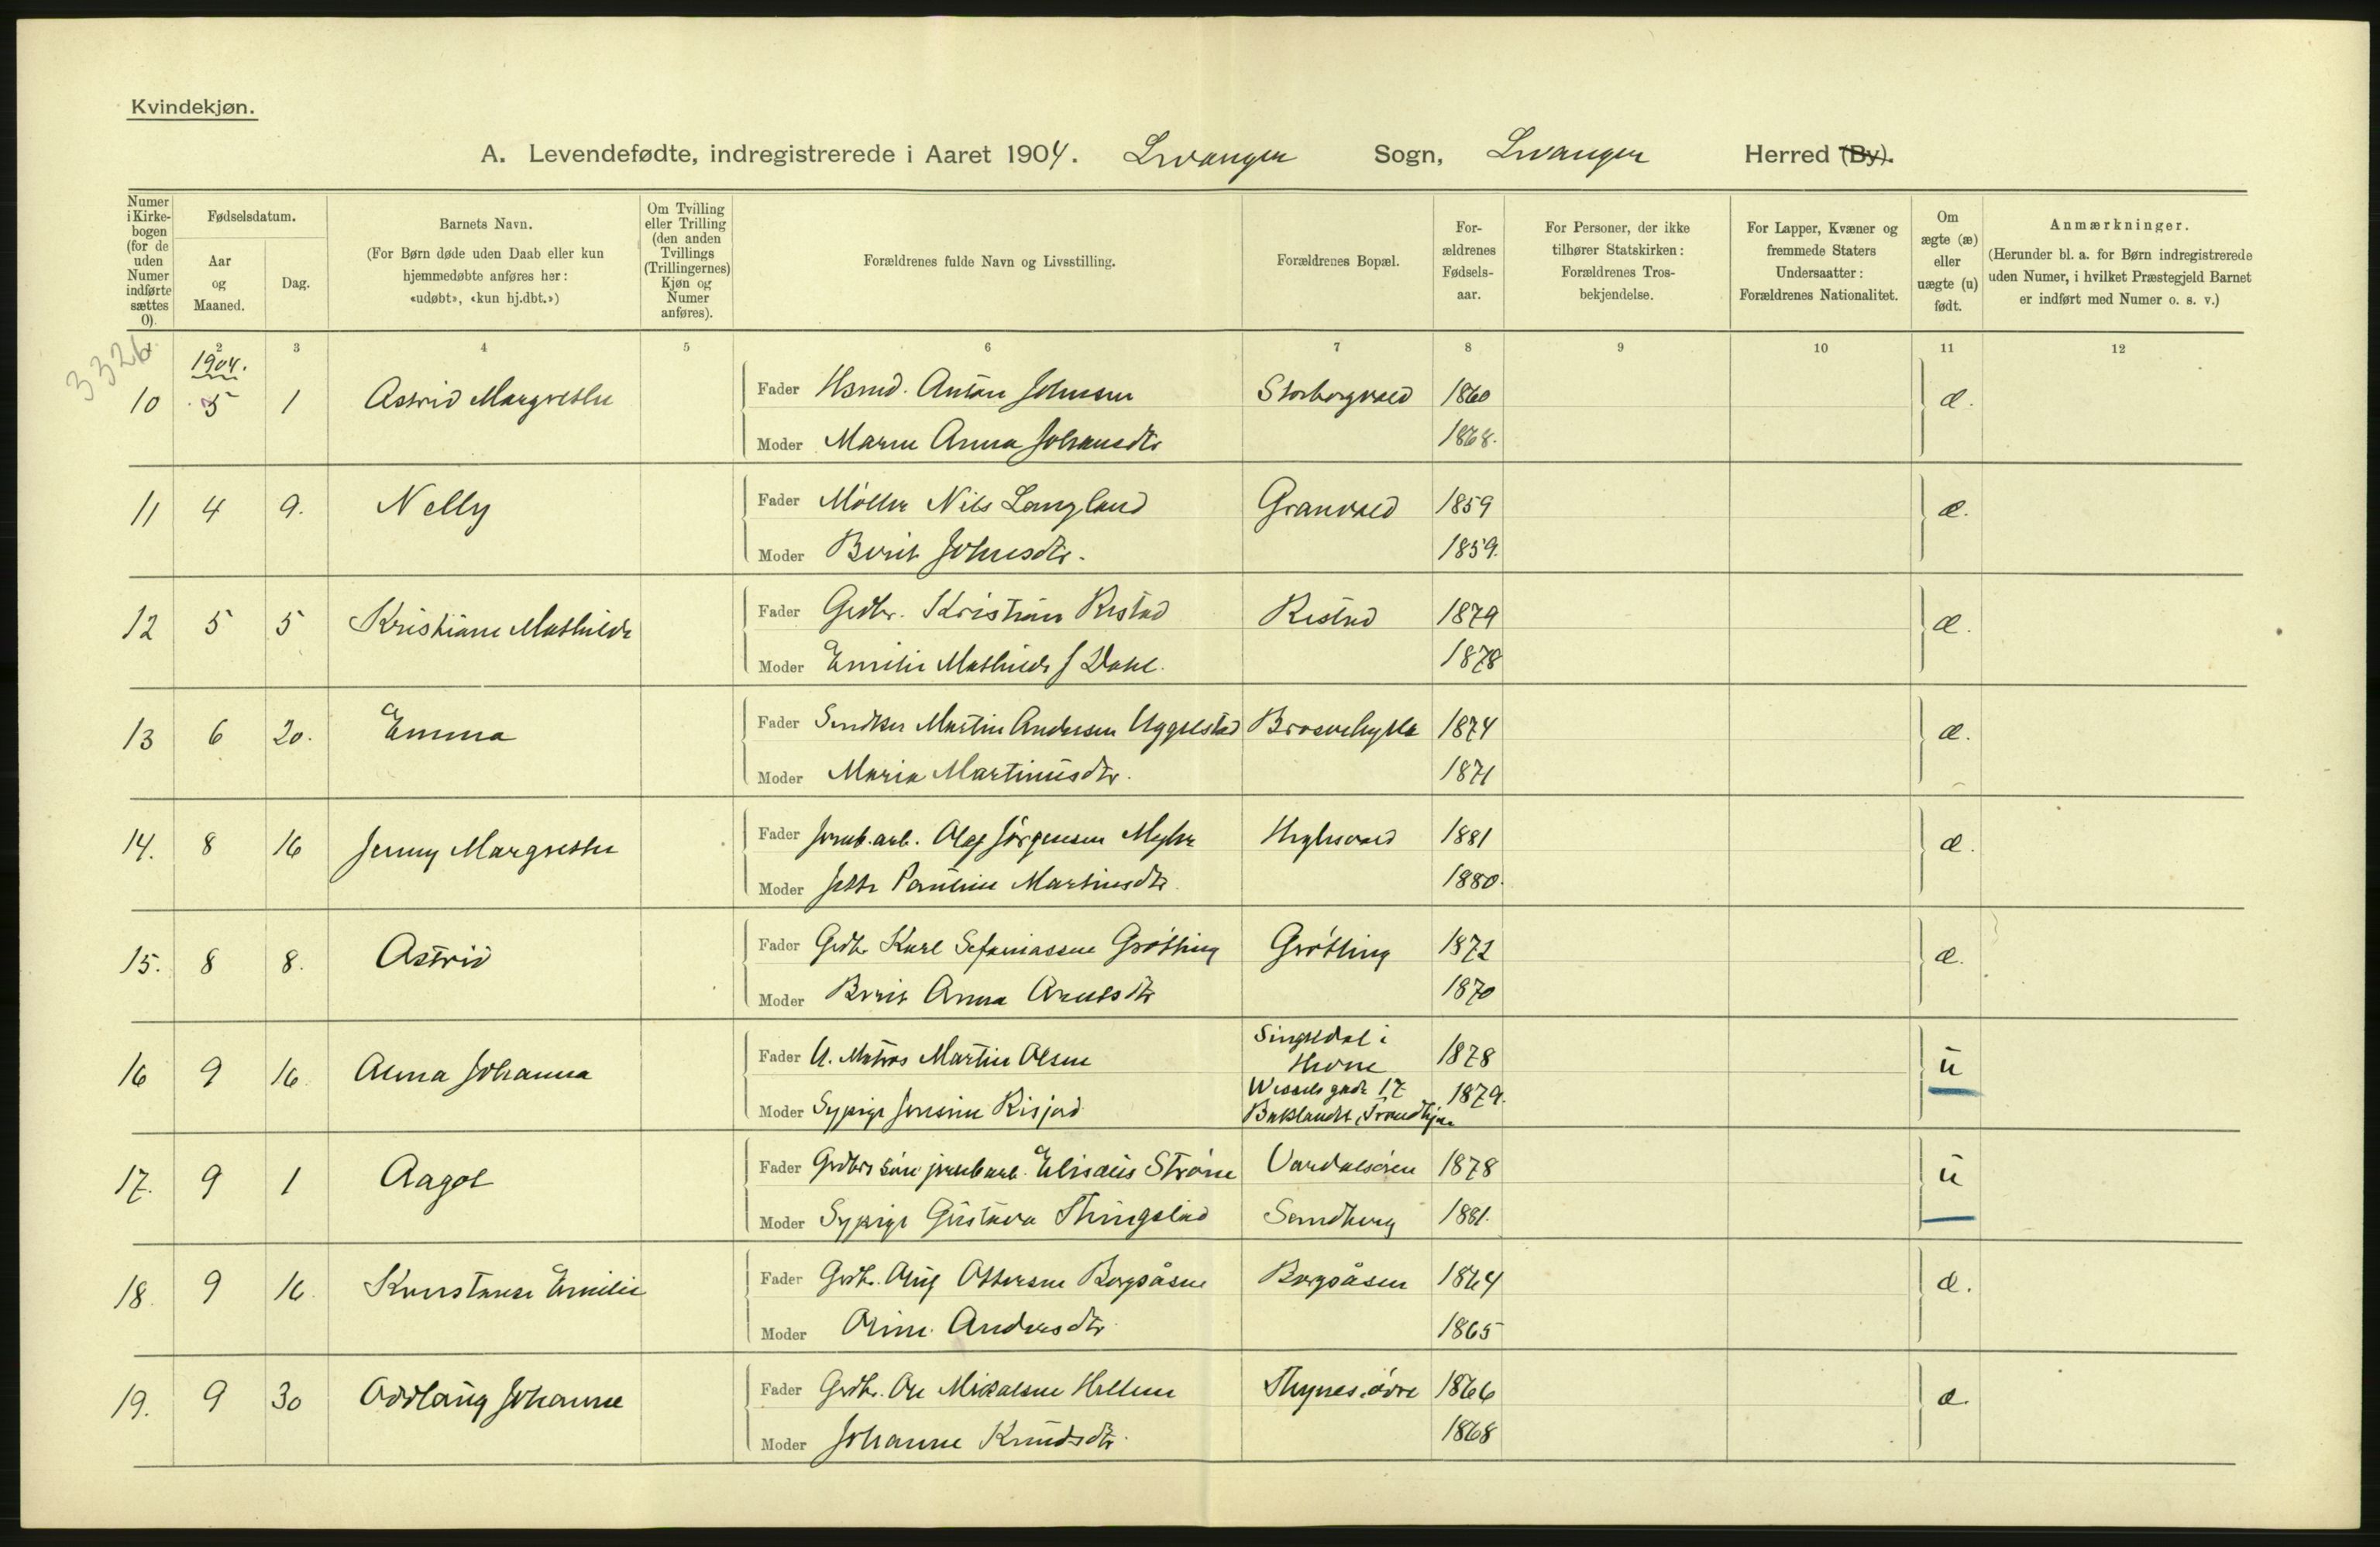 Kvindekjøn.
A. Levendefødte, indregistrerede i Aaret 1904. Levanger Sogn, Levanger Herred (By).
Numer i Kirkebogen (for de uden Numer indførte sættes 0).
Fødselsdatum.
Aar og Maaned.
Dag.
Barnets Navn.
(For Børn døde uden Daab eller kun hjemmedøbte anføres her: «udøbt», «kun hj.dbt.»)
Om Tvilling eller Trilling (den anden Tvillings (Trillingernes) Kjøn og Numer anføres).
Forældrenes fulde Navn og Livsstilling.
Forældrenes Bopæl.
For-ældrenes Fødsels-aar.
For Personer, der ikke tilhører Statskirken: Forældrenes Tros-bekjendelse.
For Lapper, Kvæner og fremmede Staters Undersaatter: Forældrenes Nationalitet.
Om ægte (æ) eller uægte (u) født.
Anmærkninger.
(Herunder bl. a. for Børn indregistrerede uden Numer, i hvilket Præstegjeld Barnet er indført med Numer o. s. v.)
3326
1 2 3 4 5 6 7 8 9 10 11 12
1904.
10 5 1 Astrid Margrethe Fader Hsmd. Anton Johnsen Storborgvald 1860 æ.
Moder Maren Anna Johansdtr 1868.
11 4 9. Nelly Fader Møller Nils Langland Granvald 1859 æ.
Moder Berit Johnsdtr. 1859.
12 5 5 Kristiane Mathilde Fader Grdbr. Kristian Ristad Ristad 1879 æ.
Moder Emilie Mathilde J Dahl. 1878
13 6 20. Emma Fader Snedker Martin Andersen Uggelstad 1874 æ.
Moder Maria Martinusdtr. 1871
14. 8 16 Jenny Margrethe Fader Jernb.arb. Olaf Jörgensen 1881 æ.
Moder Jette Pauline Martinsdtr. 1880.
15. 8 8. Astrid Fader Grdbr Karl Sefaniassen Grötting Grötting 1872 æ.
Moder Berit Anna Arntsdtr 1870
16 9 16. Anna Johanna Fader U. Matros Martin Olsen Singsdal i 1878 u
Moder Sypige Jensine Risjord Wessels gade 17 1879.
Baklandet, Trondhjem
17. 9 1 Aagot Fader Grdbrs sön jernb arb. Elisæus Ström Værdalsören 1878 u
Moder Sypige Gustava Thingstad Sandberg 1881.
18. 9 16. Konstanse Emilie Fader Grdbr. Oluf Ottersen Borgsåsen Borgsåsen 1864 æ.
Moder Oline Andersdtr 1865
19. 9 30 Oddlaug Johanne Fader Grdbr. Ole Mikalsen Hellem Thynes övre 1866 æ.
Moder Johanne Knudsdtr. 1868